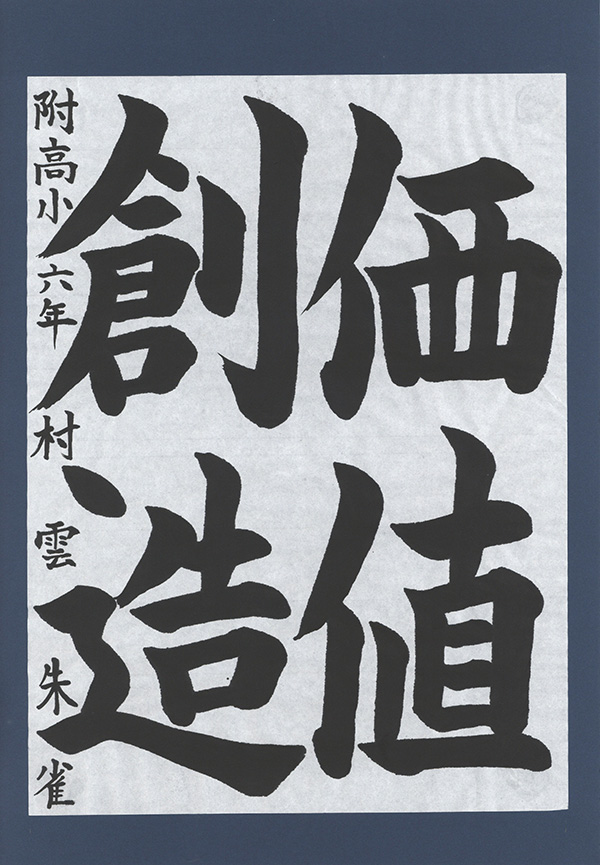 価値
創造
附高小六年 村雲朱雀